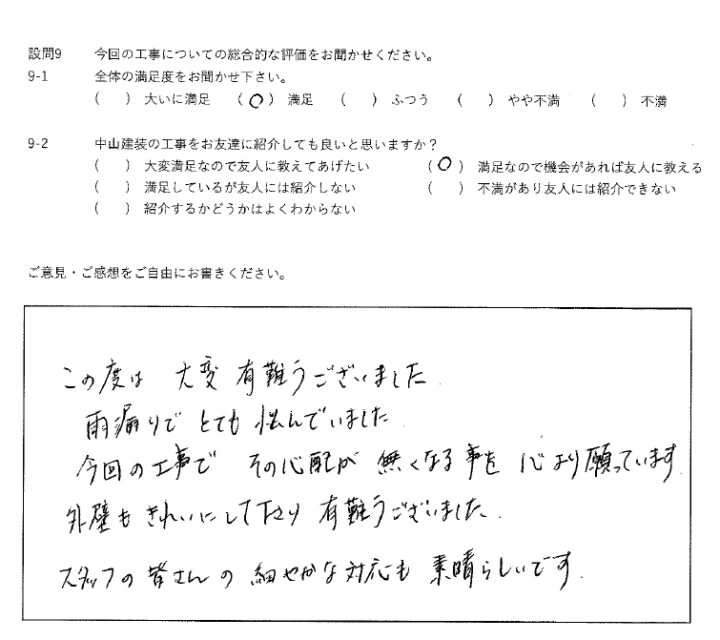 設問9 今回の工事についての総合的な評価をお聞かせください。
9-1 全体の満足度をお聞かせ下さい。
( ) 大いに満足 (○) 満足 ( ) ふつう ( ) やや不満 ( ) 不満
9-2 中山建装の工事をお友達に紹介しても良いと思いますか？
( ) 大変満足なので友人に教えてあげたい (○) 満足なので機会があれば友人に教える
( ) 満足しているが友人には紹介しない ( ) 不満があり友人には紹介できない
( ) 紹介するかどうかはよくわからない
ご意見・ご感想をご自由にお書きください。
この度は 大変 有難うございました.
雨漏りで とても 悩んでいました.
今回の工事で その心配が 無くなる事を 心より願っています.
外壁も きれいにして下さり 有難うございました.
スタッフの皆さんの 細やかな対応も 素晴らしいです.